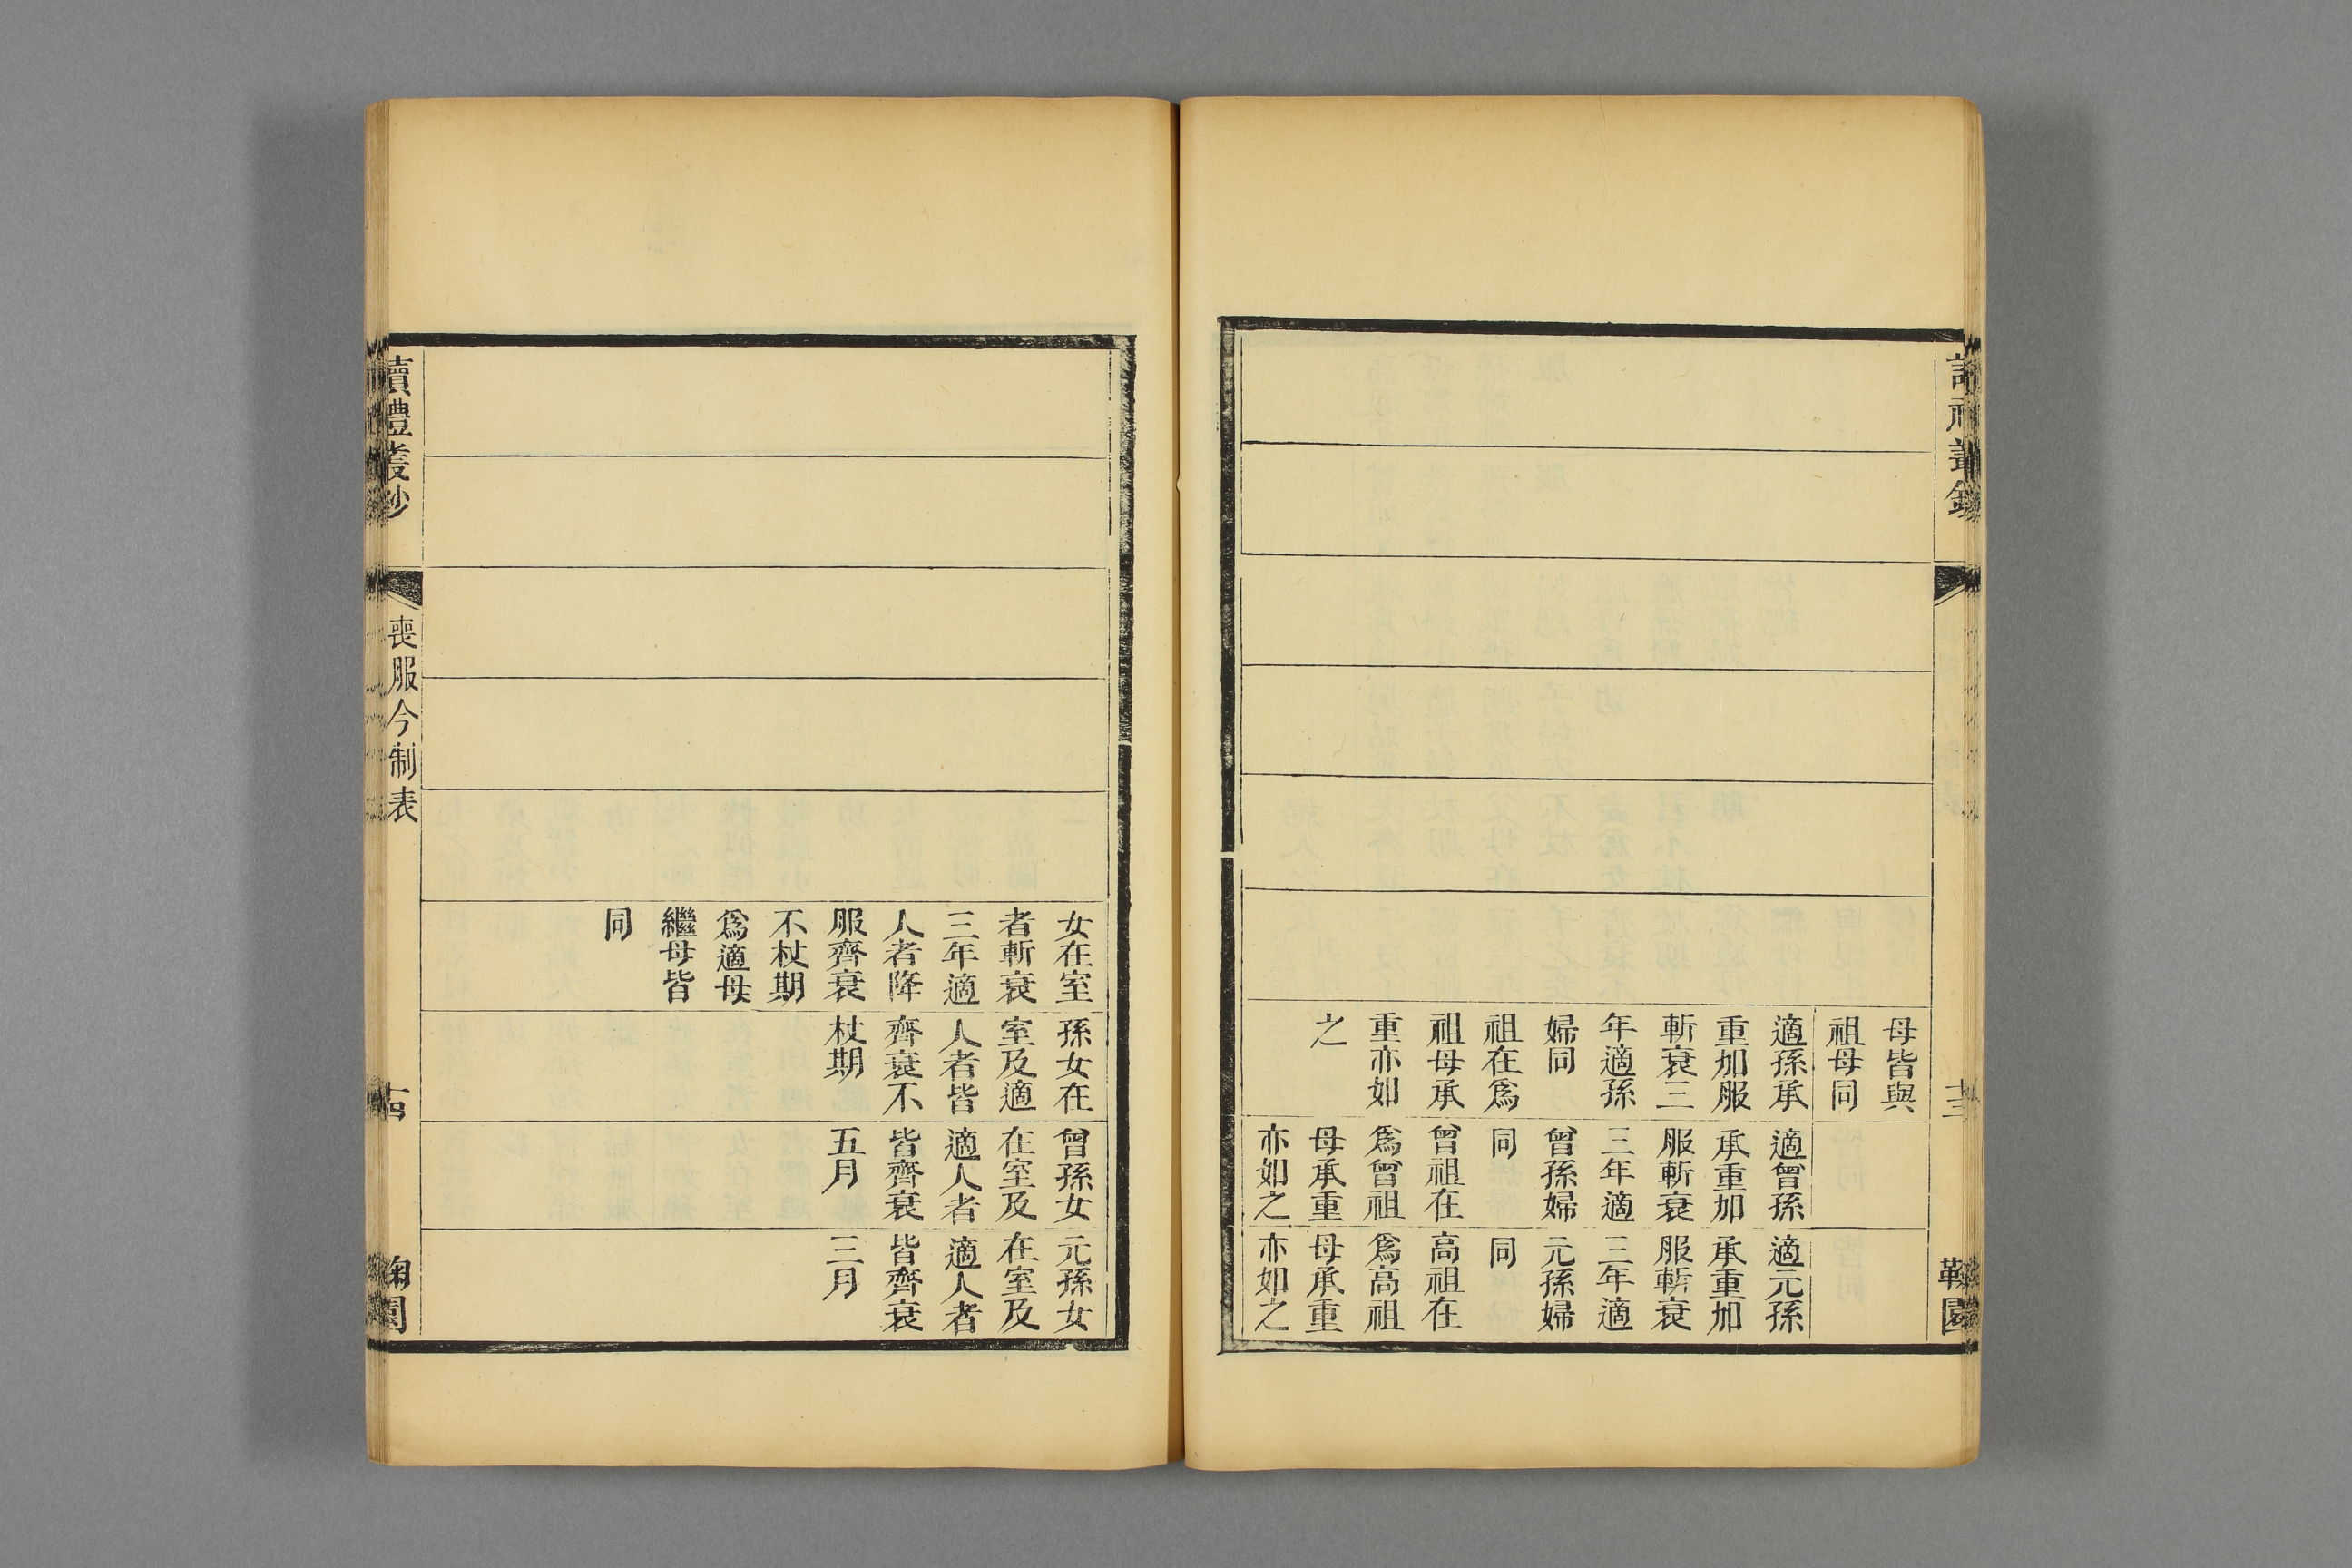 母皆與
祖母同
適孫承
重加服
斬衰三
年適孫
婦同
祖在爲
祖母承
重亦如
之
適曾孫
承重加
服斬衰
三年適
曾孫婦
同
曾祖在
爲曾祖
母承重
亦如之
適元孫
承重加
服斬衰
三年適
元孫婦
同
高祖在
爲高祖
母承重
亦如之
十三
女在室
者斬衰
三年適
人者降
服齊衰
不杖期
爲適母
繼母皆
同
孫女在
室及適
人者皆
齊衰不
杖期
曾孫女
在室及
適人者
皆齊衰
五月
元孫女
在室及
適人者
皆齊衰
三月
讀禮叢鈔
喪服今制表
十四
鞠園